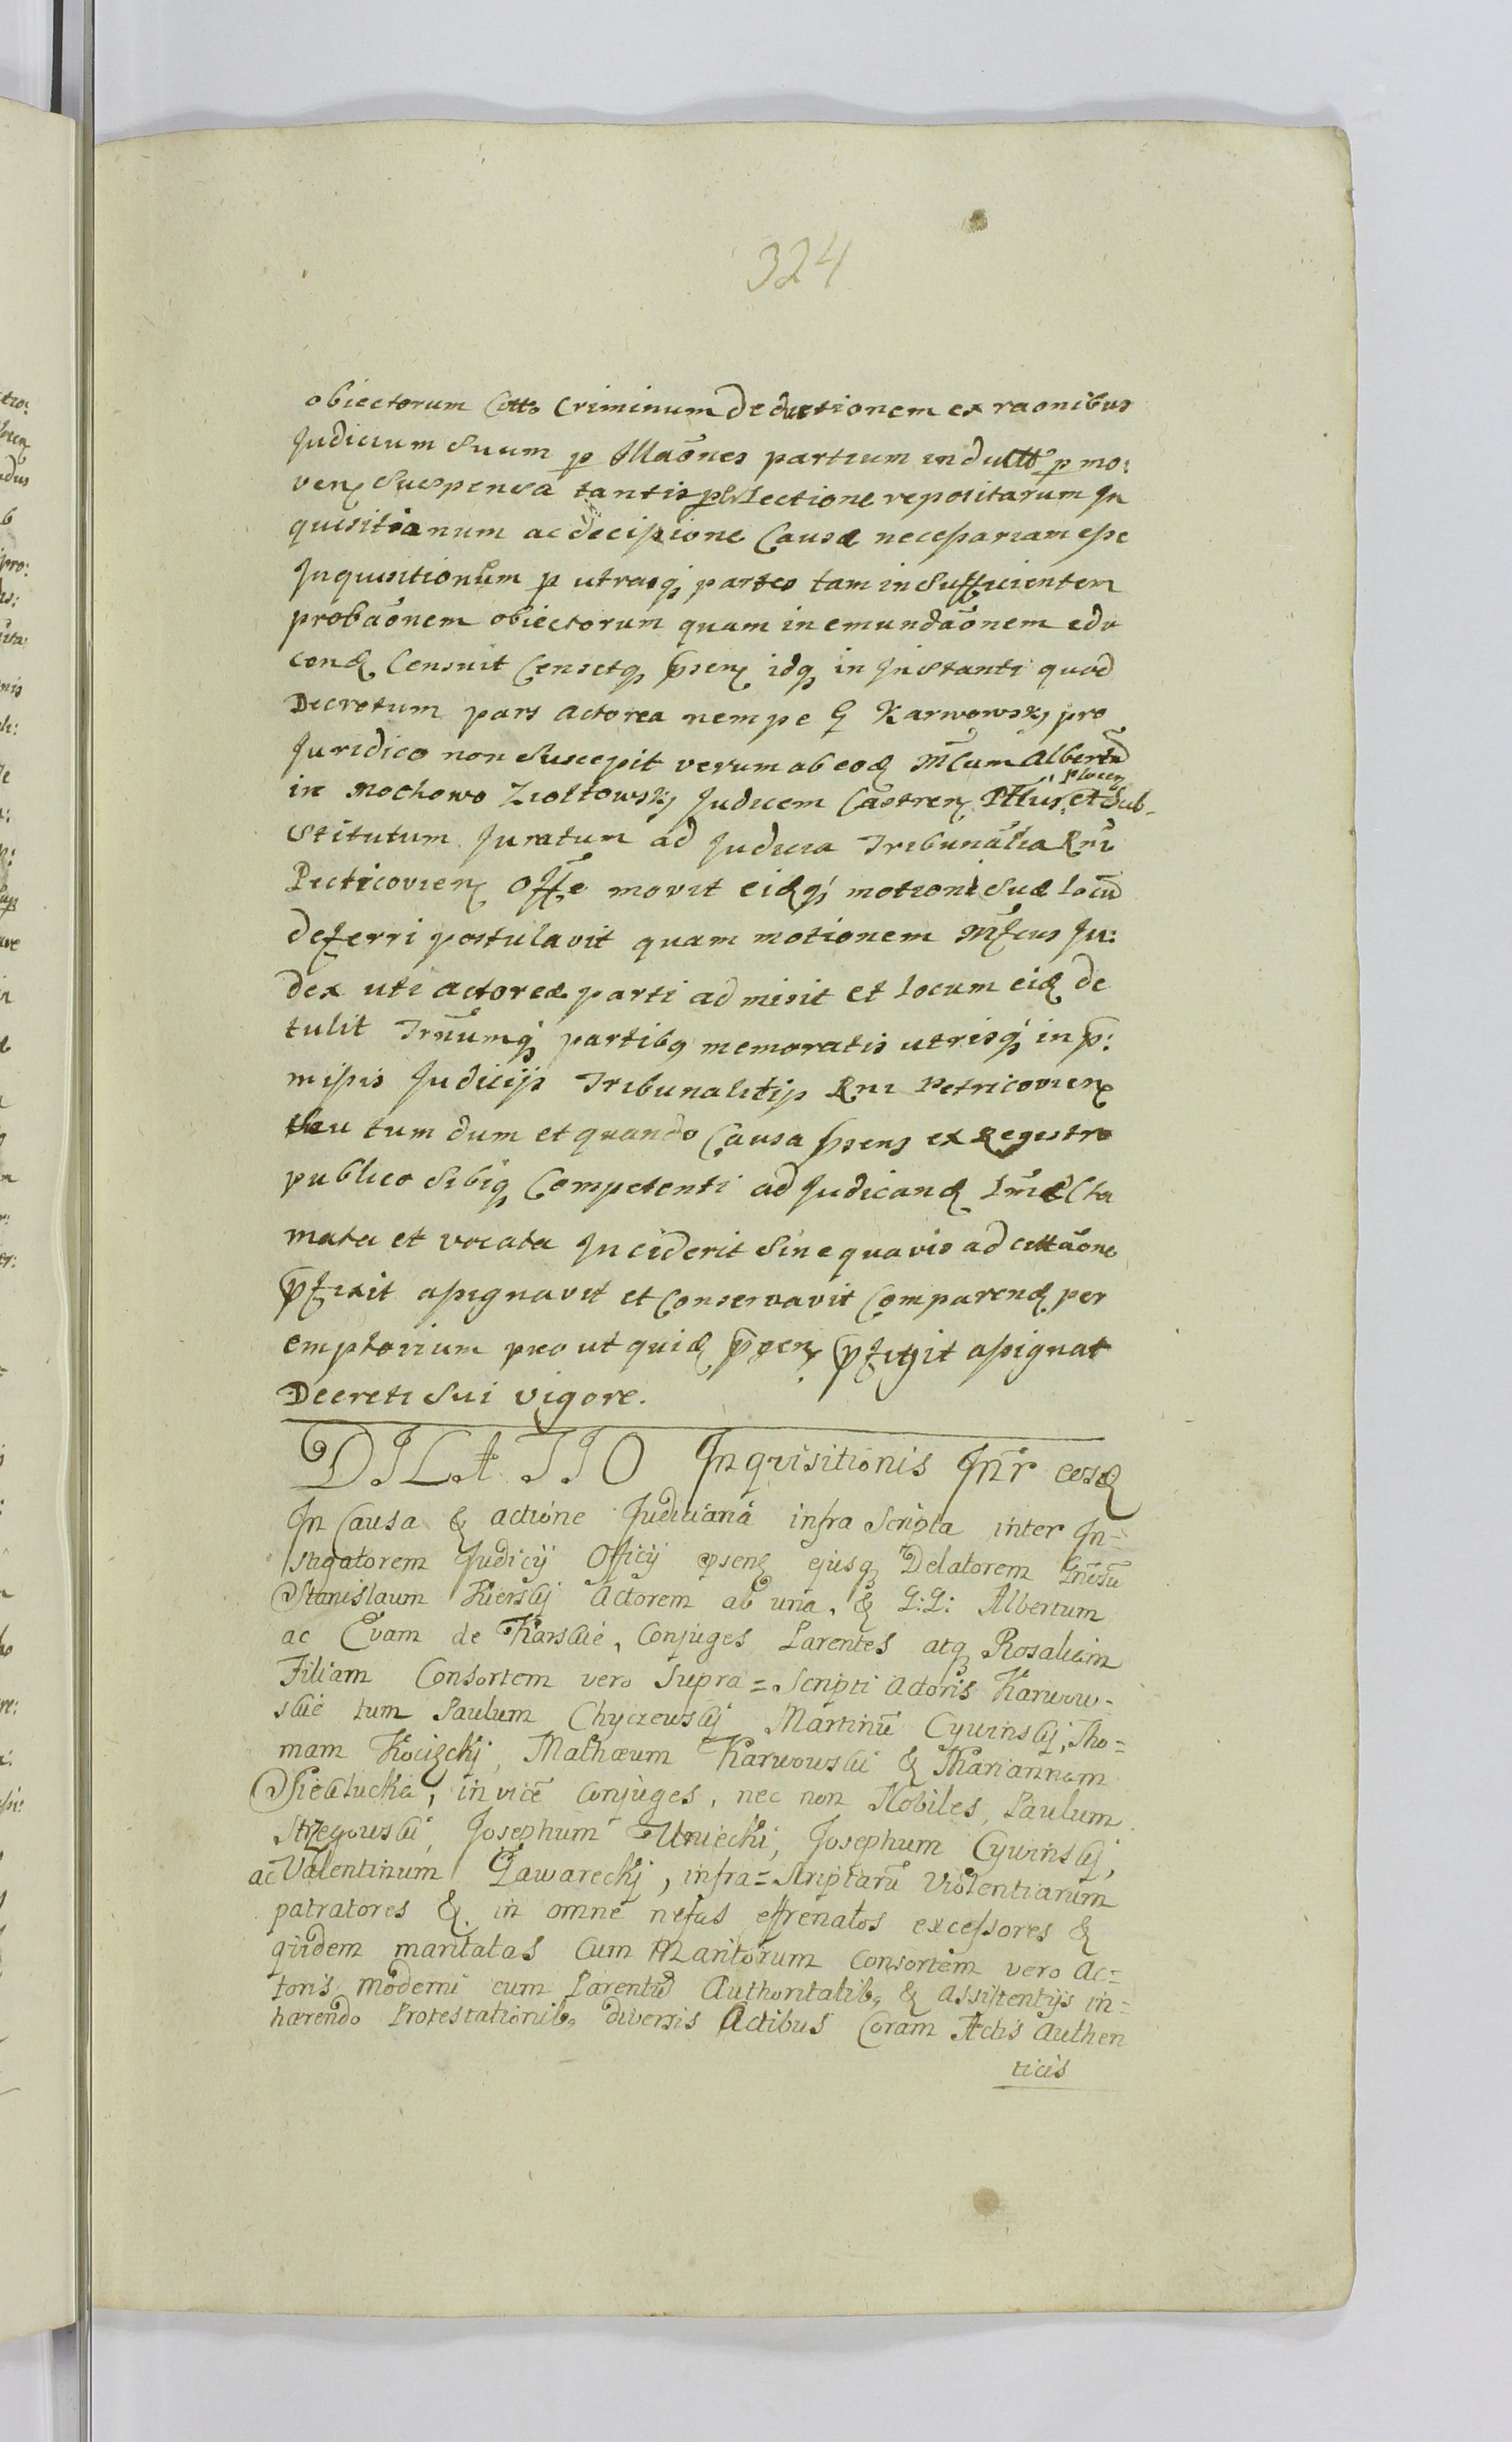 324
obiectorum Citto Criminum deductionem ex raonibus
Judicium Suum p Illaões partium inductto p mo:
ven Suspensa tantisp lectione repositarum In
quisitionum ac decissione Causæ necessariam esse
Inquisitionum p utrasq partes tam in Sufficientem
probaõnem obiectorum quam in emundaõnem edu
cend Censuit Censetq psen idq in Instanti quod
Decretum pars actorea nempe G Karwowsky pro
Juridico non Suscepit verum ab eod Mcum Albertū
in Mochowo Ziołtowsky Judicem Castren Plocen et Sub-
stitutum Juratum ad Judicia Tribunalia Rni
Pietricovien Offe movit eidq motioni Suæ locū
deferri postulavit quam motionem Mfcus Ju:
dex uti actoreæ parti admisit et locum eid de
tulit Trnūmq partibq memoratis utrisq in p:
missis Judicijs Tribunalitijs Rni Petricovien
tum dum et quando Causa psens ex Regestro
publico Sibiq Competenti ad Judicand Cla
mata et vocata Inciderit Sine quavis ad cittãone
pfixit assignavit et Conservavit Comparend per
emptorium pro ut quid psen pfigit assignat
Decreti Sui vigore.
DILATIO Inquisitionis Intr eosd
In Causa & actione Judiciaria infra Scripta inter In=
stigatorem Judicij Officij psens ejusq Delatorem Gnosū
Stanislaum Kierskj Actorem ab una, & G:G: Albertum
ac Evam de Karskie, Conjuges Parentes atq Rosaliam
Filiam Consortem vero Supra=Scripti Actoris Karwow-
skie tum Paulum Chyczewskj Martinū Cywinskj, Tho=
mam Kocięckj, Mathæum Karwowski & Mariannam
Siecluckie, in vicē Conjuges, nec non Nobiles, Paulum
Strzegowski, Josephum Uniecki, Josephum Cywinskj,
ac Valentinum Gawareckj, infra=Scriptarū Violentiarum
patratores & in omne nefas effrenatos excessores &
quidem maritatas Cum Maritorum Consortem vero Ac=
toris Moderni cum Parentū Authoritatib, & Assistentijs in=
hærendo Protestationib, diversis Actibus Coram Actis Authen
ticis